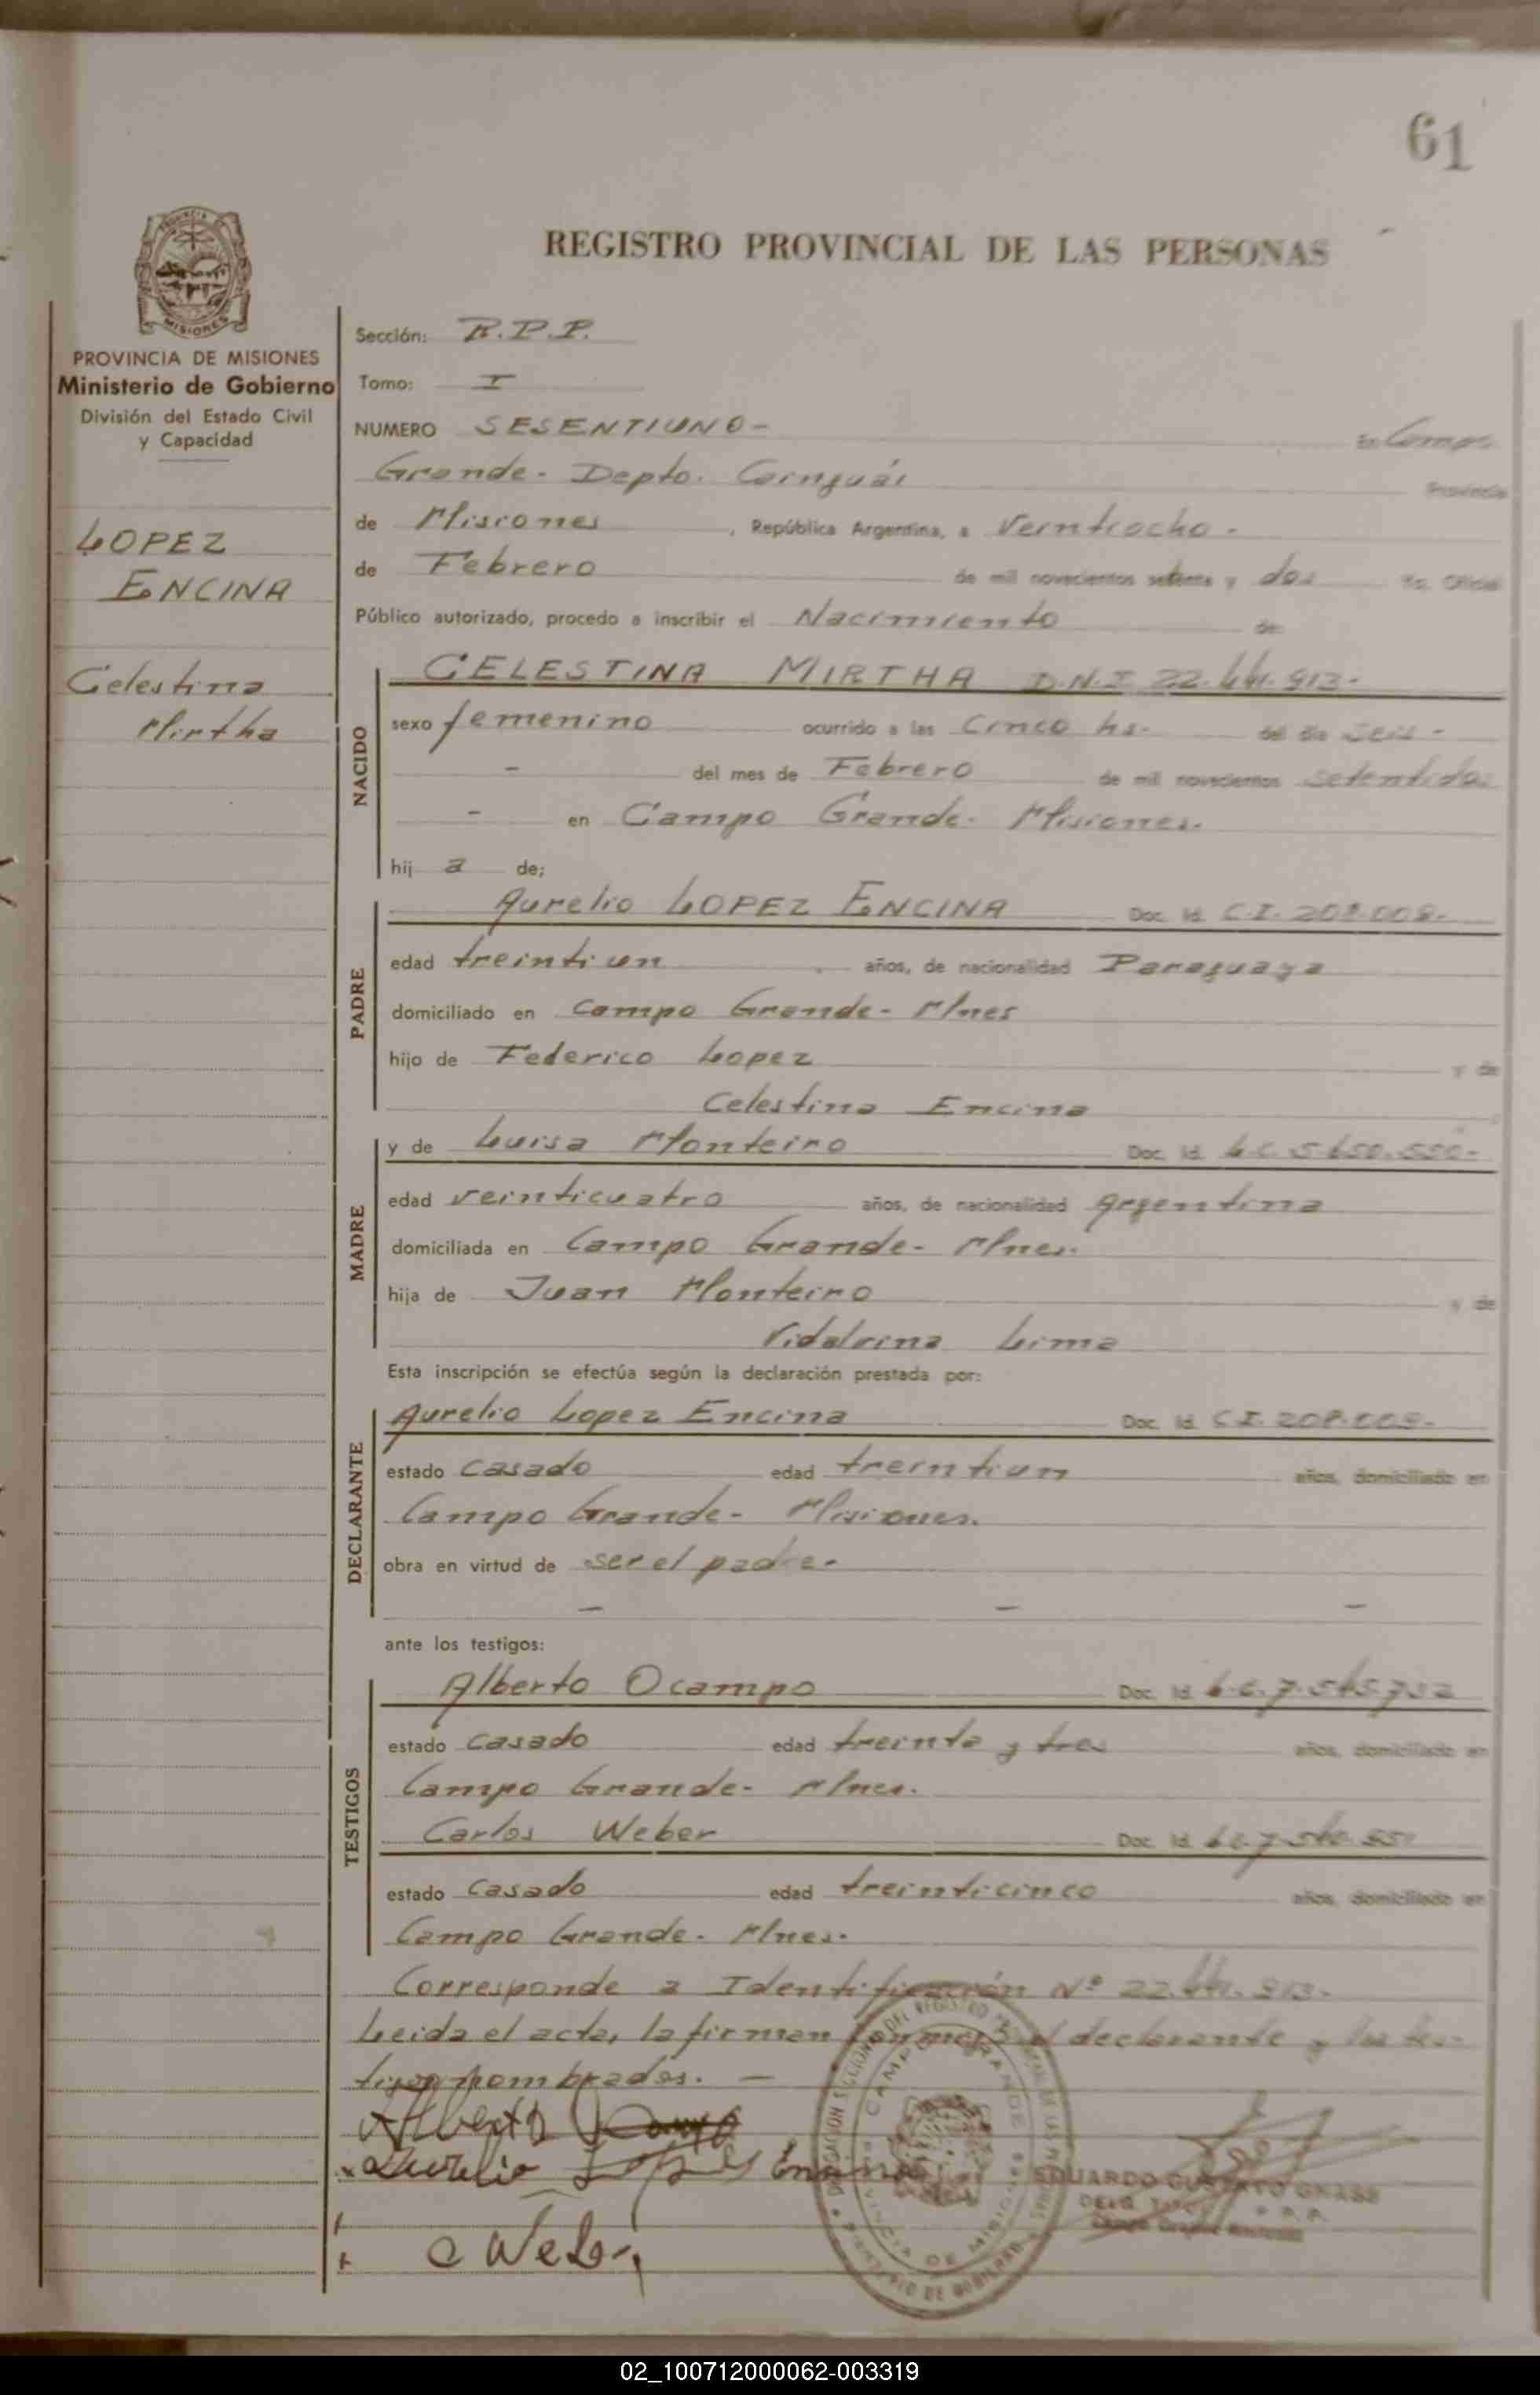 61
REGISTRO PROVINCIAL DE LAS PERSONAS
PROVINCIA DE MISIONES
Ministerio de Gobierno
División del Estado Civil
y Capacidad
LOPEZ
ENCINA
Celestina
Mirtha
Sección: R.P.P.
Tomo: I
NUMERO SESENTIUNO - En Campo
Grande - Depto. Cainguás Provincia
de Misiones, República Argentina, a Veintiocho -
de Febrero de mil novecientos setenta y dos Yo, Oficial
Público autorizado, procedo a inscribir el Nacimiento de
NACIDO
CELESTINA MIRTHA D.N.I 22.441.913-
sexo femenino ocurrido a las Cinco hs. del día Seis -
- del mes de Febrero de mil novecientos setentidos
- en Campo Grande - Misiones.
hij a de;
PADRE
Aurelio LOPEZ ENCINA Doc. Id. C.I. 208.008-
edad treintiun años, de nacionalidad Paraguaya
domiciliado en Campo Grande - Mnes
hijo de Federico Lopez y de
Celestina Encina
MADRE
y de Luisa Monteiro Doc. Id. L.C. 5.650.550-
edad veinticuatro años, de nacionalidad Argentina
domiciliada en Campo Grande - Mnes.
hija de Juan Monteiro y de
Vidalvina Lima
Esta inscripción se efectúa según la declaración prestada por:
DECLARANTE
Aurelio Lopez Encina Doc. Id. C.I. 208.008-
estado Casado edad treintiun años, domiciliado en
Campo Grande - Misiones.
obra en virtud de ser el padre -
- - -
ante los testigos:
TESTIGOS
Alberto Ocampo Doc. Id. L.E. 7.545.732
estado Casado edad treinta y tres años, domiciliado en
Campo Grande - Mnes.
Carlos Weber Doc. Id. L.E. 7.540.551
estado Casado edad treinticinco años, domiciliado en
Campo Grande - Mnes.
Corresponde a Identificación Nº 22.441.913-
Leida el acta, la firman conmigo el declarante y los tes-
tigos nombrados. -
Alberto Ocampo
Aurelio Lopez Encina
C Weber
EDUARDO GUSTAVO
CAMPO GRANDE
PROVINCIA DE MISIONES
MINISTERIO DE GOBIERNO
02_100712000062-003319